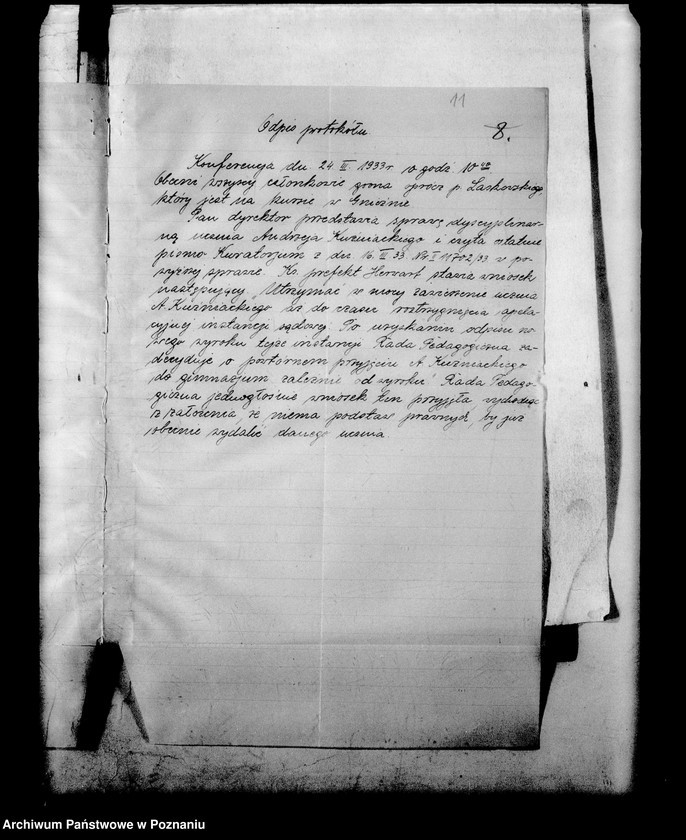 11
8.
Odpis protokółu
Konferencja dn. 24 III 1933 r. o godz. 10⁴⁰
Obecni wszyscy członkowie grona oprócz p. Laskowskiego
który jest na kursie w Gnieźnie.
Pan dyrektor przedstawia sprawę dyscyplinar-
ną ucznia Andrzeja Kuźniackiego i czyta ostatnie
pismo Kuratorjum z dn. 16. III 33. Nr I 11702/33 w po-
wyższej sprawie. Ks. prefekt Hervart stawia wniosek
następujący: „Utrzymać w mocy zawieszenie ucznia
A. Kuźniackiego aż do czasu rozstrzygnięcia apela-
cyjnej instancji sądowej. Po uzyskaniu odpisu no-
wego wyroku tejże instancji Rada Pedagogiczna za-
decyduje o powtórnem przyjęciu A. Kuźniackiego
do gimnazjum zależnie od wyroku" Rada Pedago-
giczna jednogłośnie wniosek ten przyjęła wychodząc
z założenia, że niema podstaw prawnych, by już
obecnie wydalić danego ucznia
Archiwum Państwowe w Poznaniu